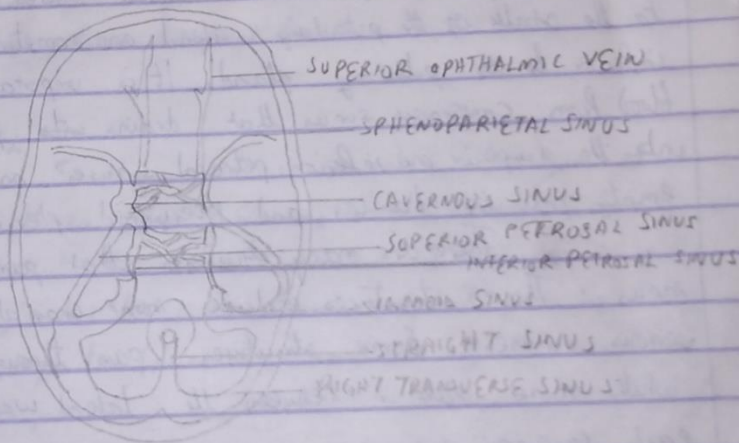 SUPERIOR OPHTHALMIC VEIN
SPHENOPARIETAL SINUS
CAVERNOUS SINUS
SUPERIOR PETROSAL SINUS
INFERIOR PETROSAL SINUS
SINUS
STRAIGHT SINUS
RIGHT TRANVERSE SINUS